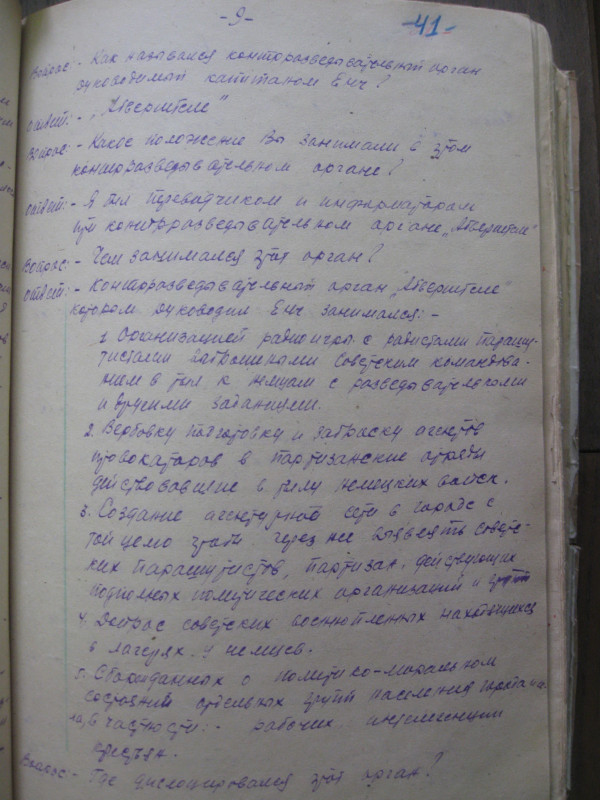 -9-
-41-
Вопрос: - Как назывался контрразведывательный орган
руководимый капитаном Енч?
Ответ: - "Абверштеле"
Вопрос: - Какое положение Вы занимали в этом
контрразведывательном органе?
Ответ: - Я был переводчиком и информатором
при контрразведывательном органе "Абверштеле"
Вопрос: - Чем занимался этот орган?
Ответ: - Контрразведывательный орган "Абверштеле"
котором руководил Енч занимался: -
1. Организацией радиоигры с радистами парашю-
тистами заброшенами Советским командова-
нием в тыл к немцам с разведывательными
и другими заданиями.
2. Вербовку подготовку и заброску агентов
провокаторов в партизанские отряды
действовавшие в тылу немецких войск.
3. Создание агентурной сети в городе с
той целю чтобы через нее выявлять советс-
ких парашутистов, партизан, действующих
подпольных политических организаций и групп
4. Допрос советских военнопленных находящихся
в лагерях у немцев.
5. о политико-моральном
состоянии отдельных групп населения города
в частности: - рабочих, интелегенции
крестьян.
Вопрос: - Где дислоцировался этот орган?